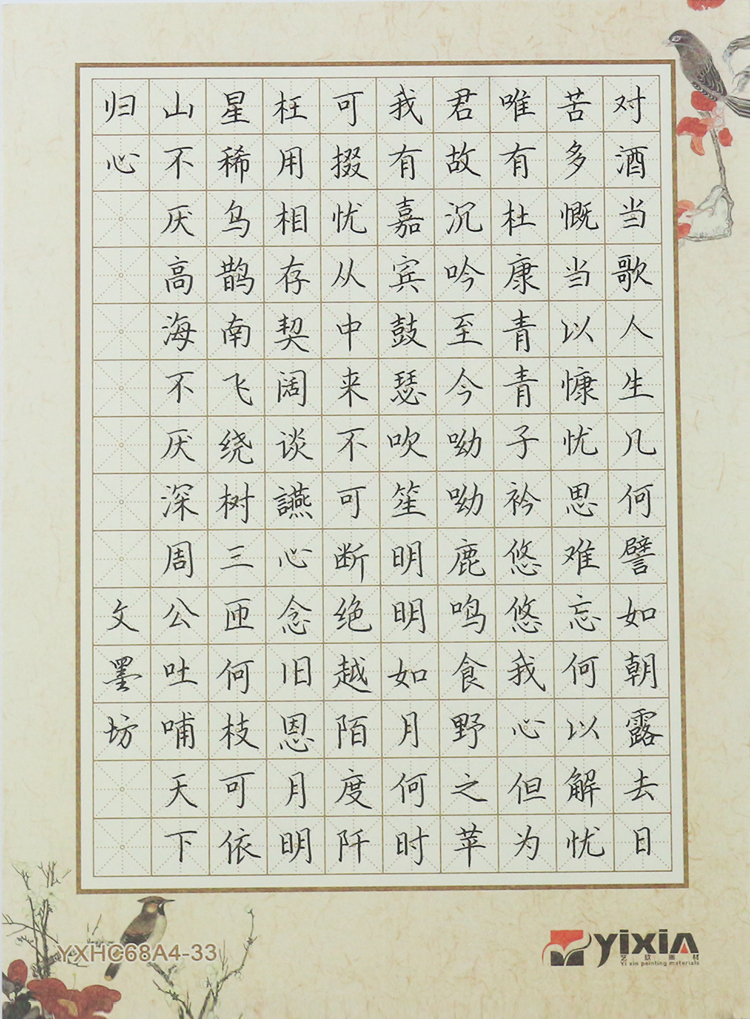 对酒当歌人生几何譬如朝露去日
苦多慨当以慷忧思难忘何以解忧
唯有杜康青青子衿悠悠我心但为
君故沉吟至今呦呦鹿鸣食野之苹
我有嘉宾鼓瑟吹笙明明如月何时
可掇忧从中来不可断绝越陌度阡
枉用相存契阔谈讌心念旧恩月明
星稀乌鹊南飞绕树三匝何枝可依
山不厌高海不厌深周公吐哺天下
归心
文墨坊
YXHC68A4-33
yixin
Yi xin painting materials